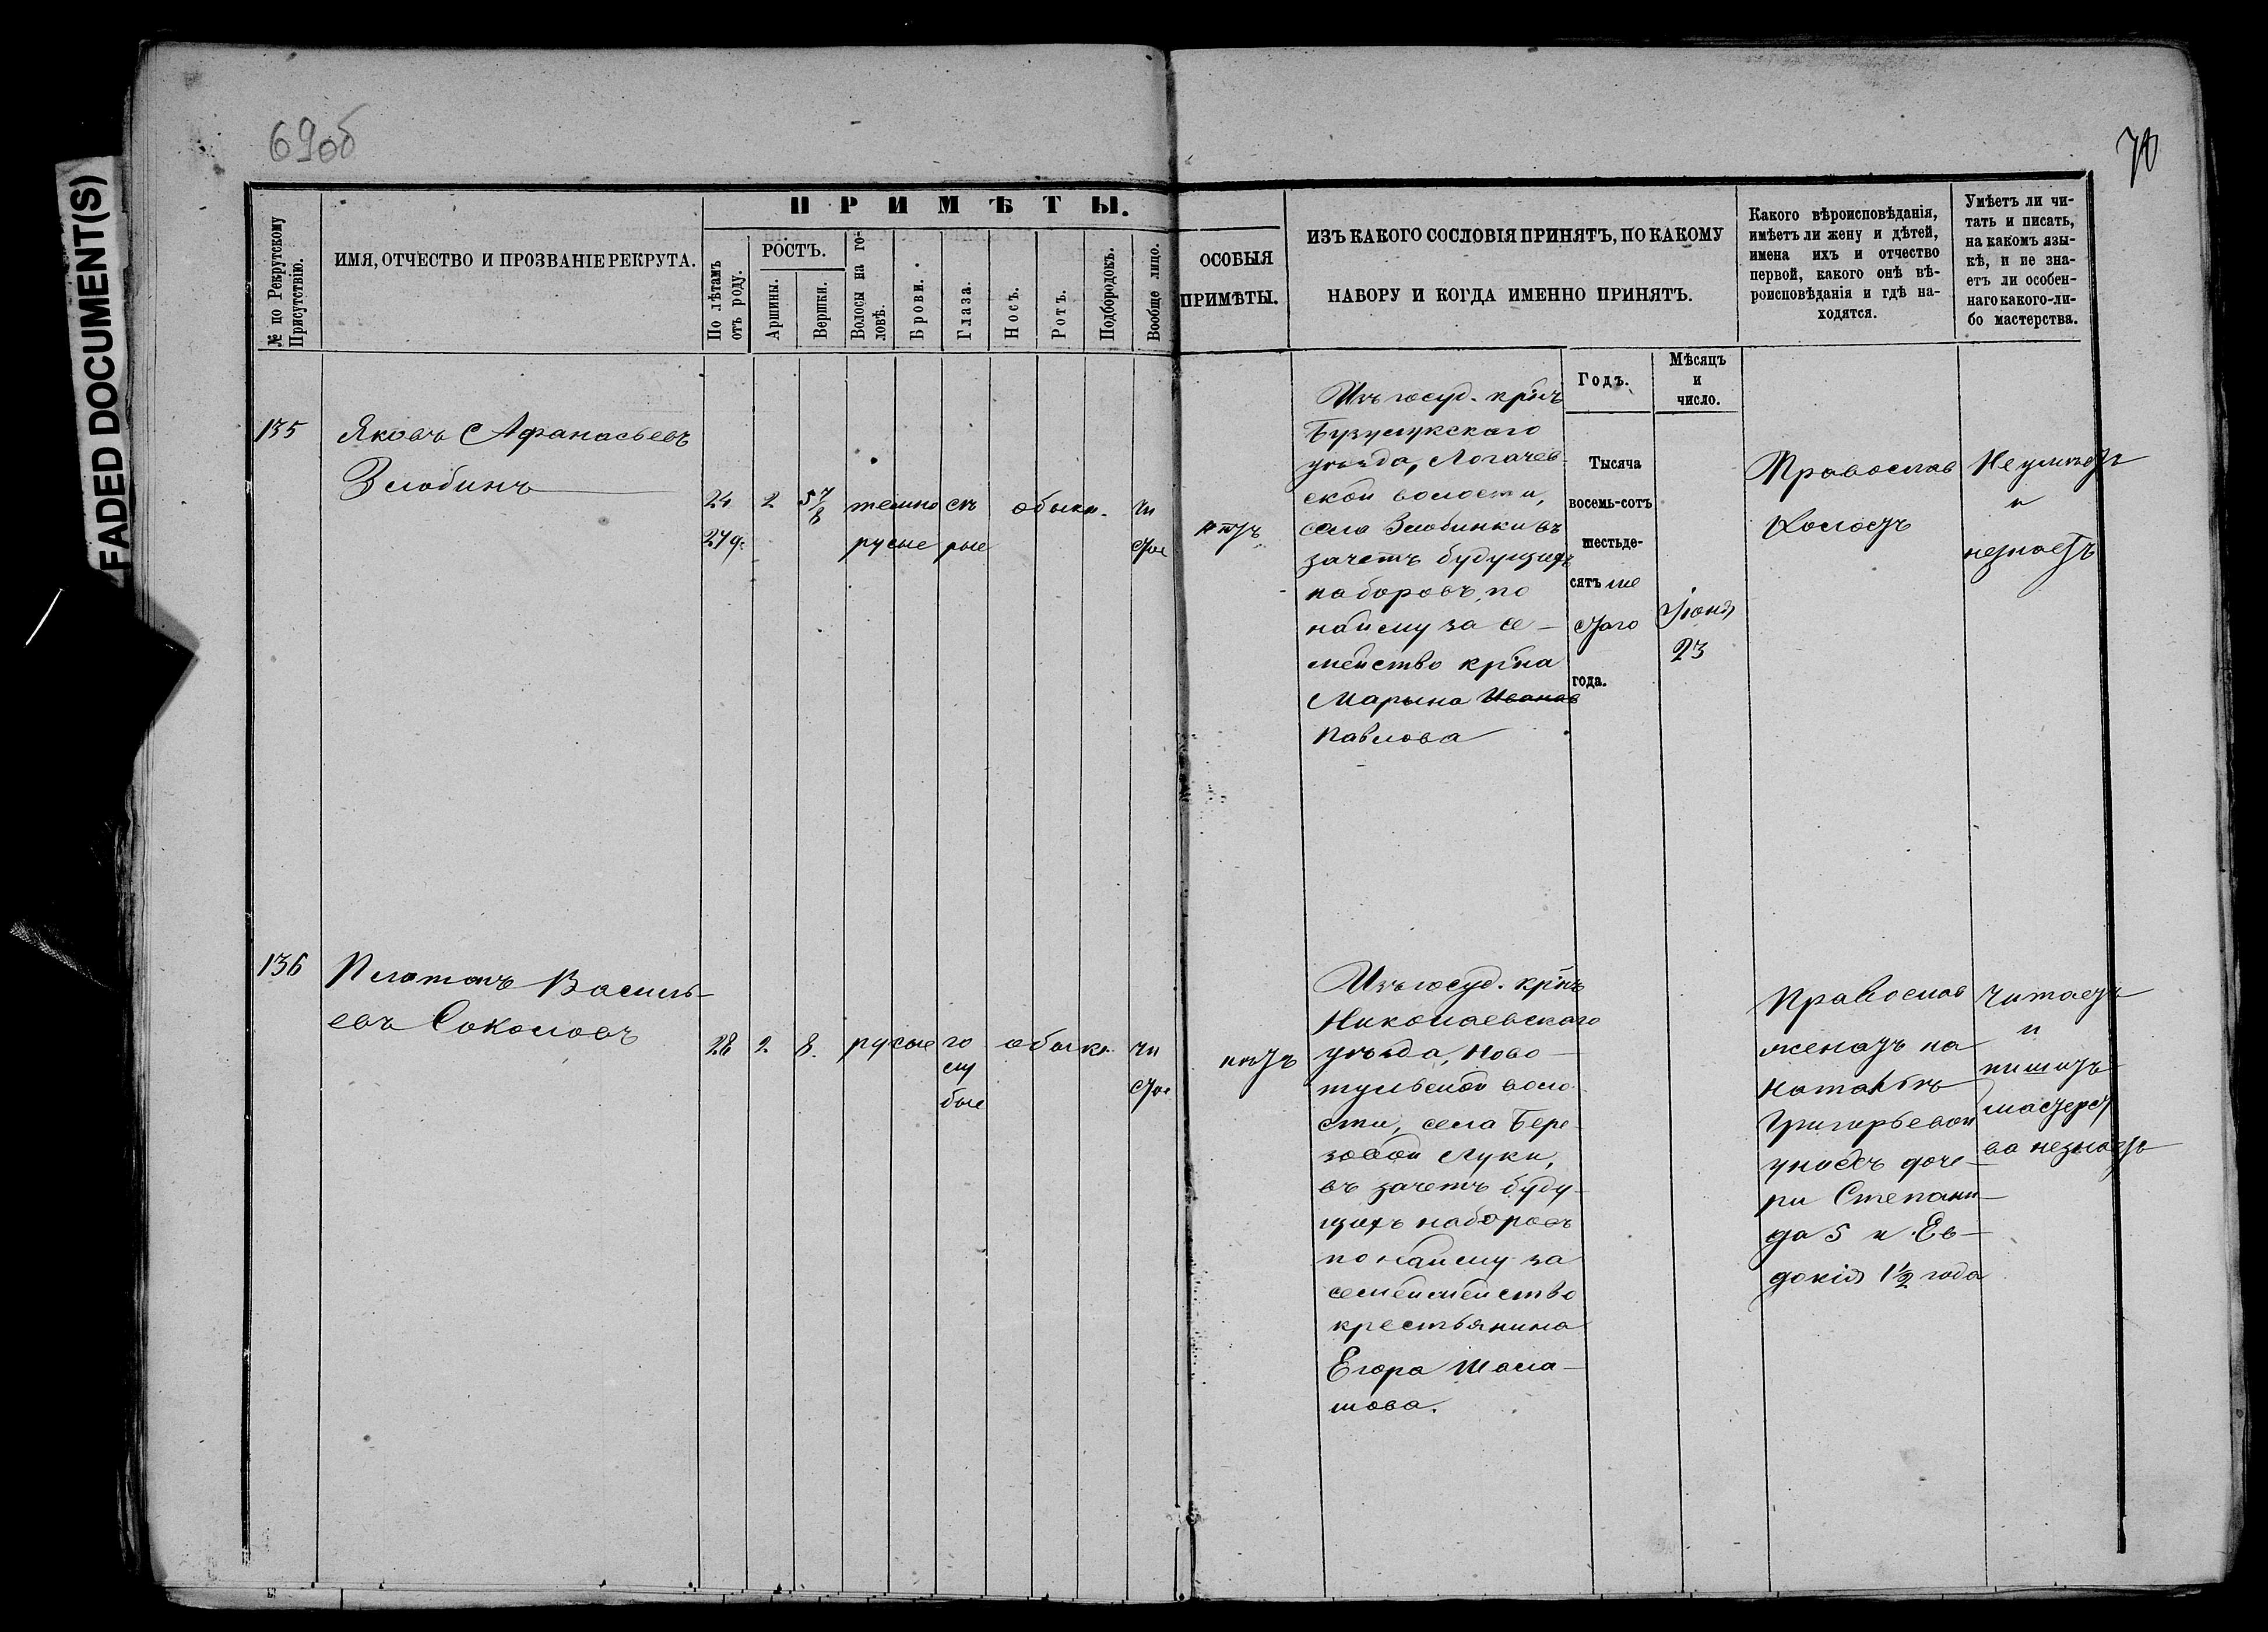 69об
70
FADED DOCUMENT(S)
№ по Рекрутскому Присутствію.
ИМЯ, ОТЧЕСТВО И ПРОЗВАНІЕ РЕКРУТА.
ПРИМѢТЫ.
По лѣтамъ отъ роду.
РОСТЪ.
Аршины.
Вершки.
Волосы на го-
ловѣ.
Брови.
Глаза.
Носъ.
Ротъ.
Подбородокъ.
Вообще лицо.
ОСОБЫЯ
ПРИМѢТЫ.
ИЗЪ КАКОГО СОСЛОВІЯ ПРИНЯТЪ, ПО КАКОМУ
НАБОРУ И КОГДА ИМЕННО ПРИНЯТЪ.
Какого вѣроисповѣданія,
имѣетъ ли жену и дѣтей,
имена ихъ и отчество
первой, какого онѣ вѣ-
роисповѣданія и гдѣ на-
ходятся.
Умѣетъ ли чи-
тать и писать,
на какомъ язы-
кѣ, и не зна-
етъ ли особен-
наго какого-ли-
бо мастерства.
Годъ.
Мѣсяцъ
и
число.
135
Яковъ Афанасьевъ
Злобинъ
24
2
5 7/8
темно
русые
сѣ
рые
обыкн.
чи
стое
нѣтъ
Изъ госуд. кр̃нъ
Бузулукскаго
уѣзда, Логачев-
ской волости,
села Злобинки въ
зачетъ будущихъ
наборовъ, по
найму за се-
мейство кр̃на
Марына Иванов
Павлова
Тысяча
восемь-сотъ
шестьде-
сятъ ше
стаго
года.
Іюня
23
Православ
Холостъ
Не умѣетъ
и
незнаетъ
136
Платонъ Василь-
евъ Соколовъ
28
2
8.
русые
го
лу
бые
обыкн.
чи
стое
нѣтъ
Изъ госуд. кр̃нъ
Николаевскаго
уѣзда, Ново-
тульской воло-
сти, села Бере-
зовой Луки,
въ зачетъ буду-
щихъ наборовъ
по найму за
семеймейство
крестьянина
Егора Шала-
шова.
Православ
женатъ на
Натальѣ
Григорьевой
унихъ доче-
ри Степани-
да 5 и Ев-
докія 1½ года
Читаетъ
и
пишетъ
мастерст
ва незнаетъ